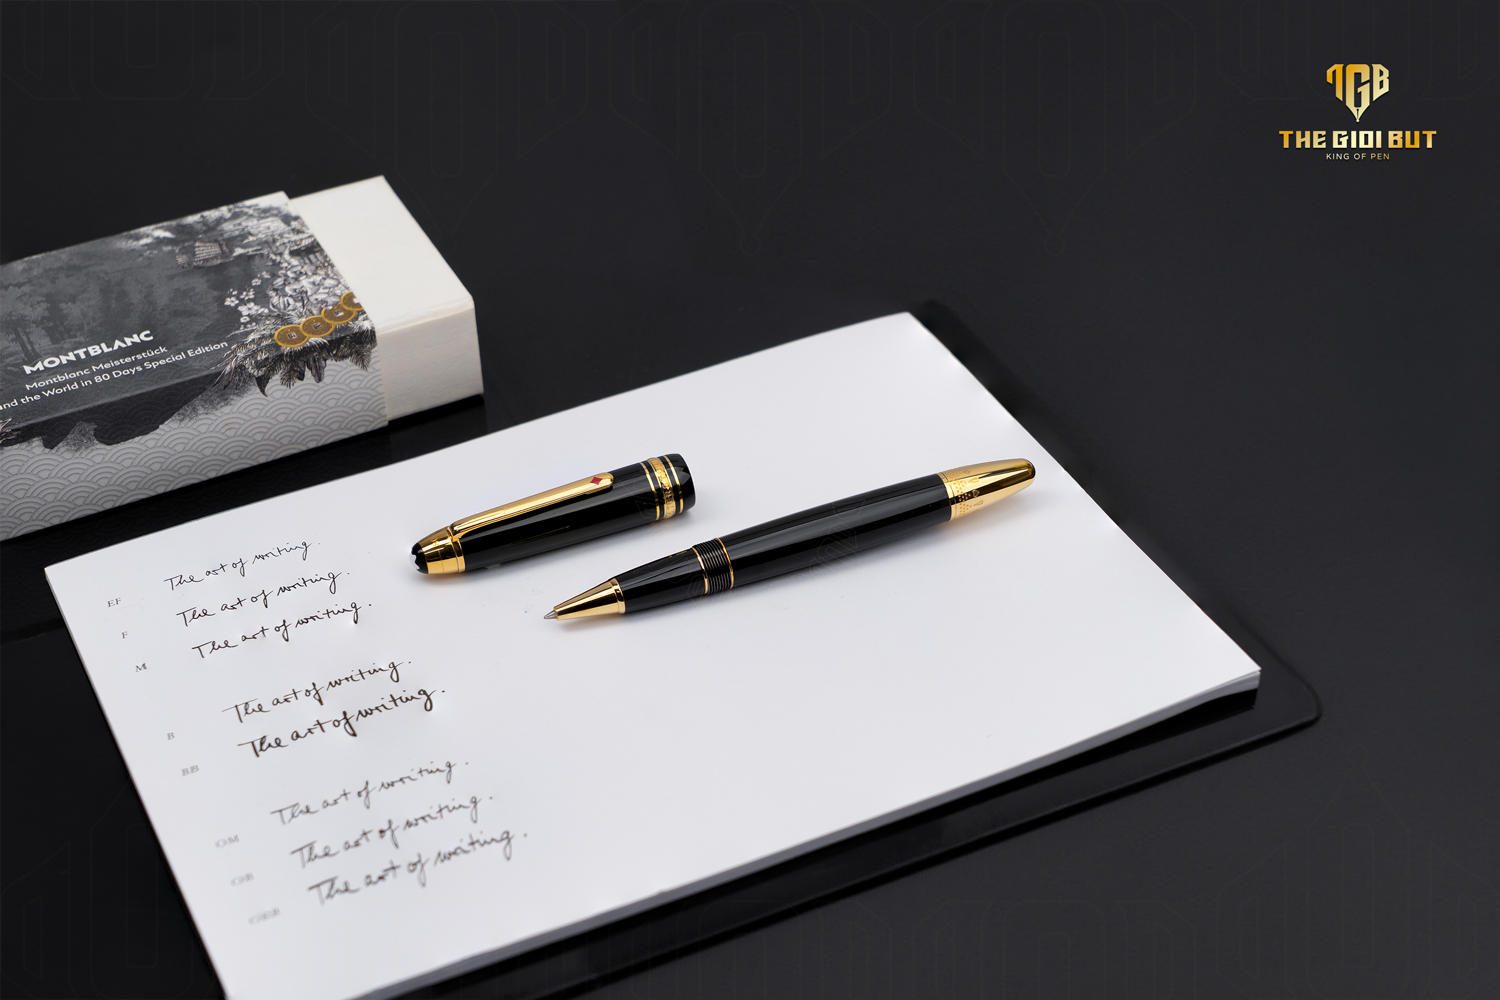 TGB
THE GIOI BUT
KING OF PEN
MONTBLANC
Montblanc Meisterstück
the World in 80 Days Special Edition
EF The art of writing.
F The art of writing.
M The art of writing.
B The art of writing.
BB The art of writing.
OM The art of writing.
OB The art of writing.
OBB The art of writing.